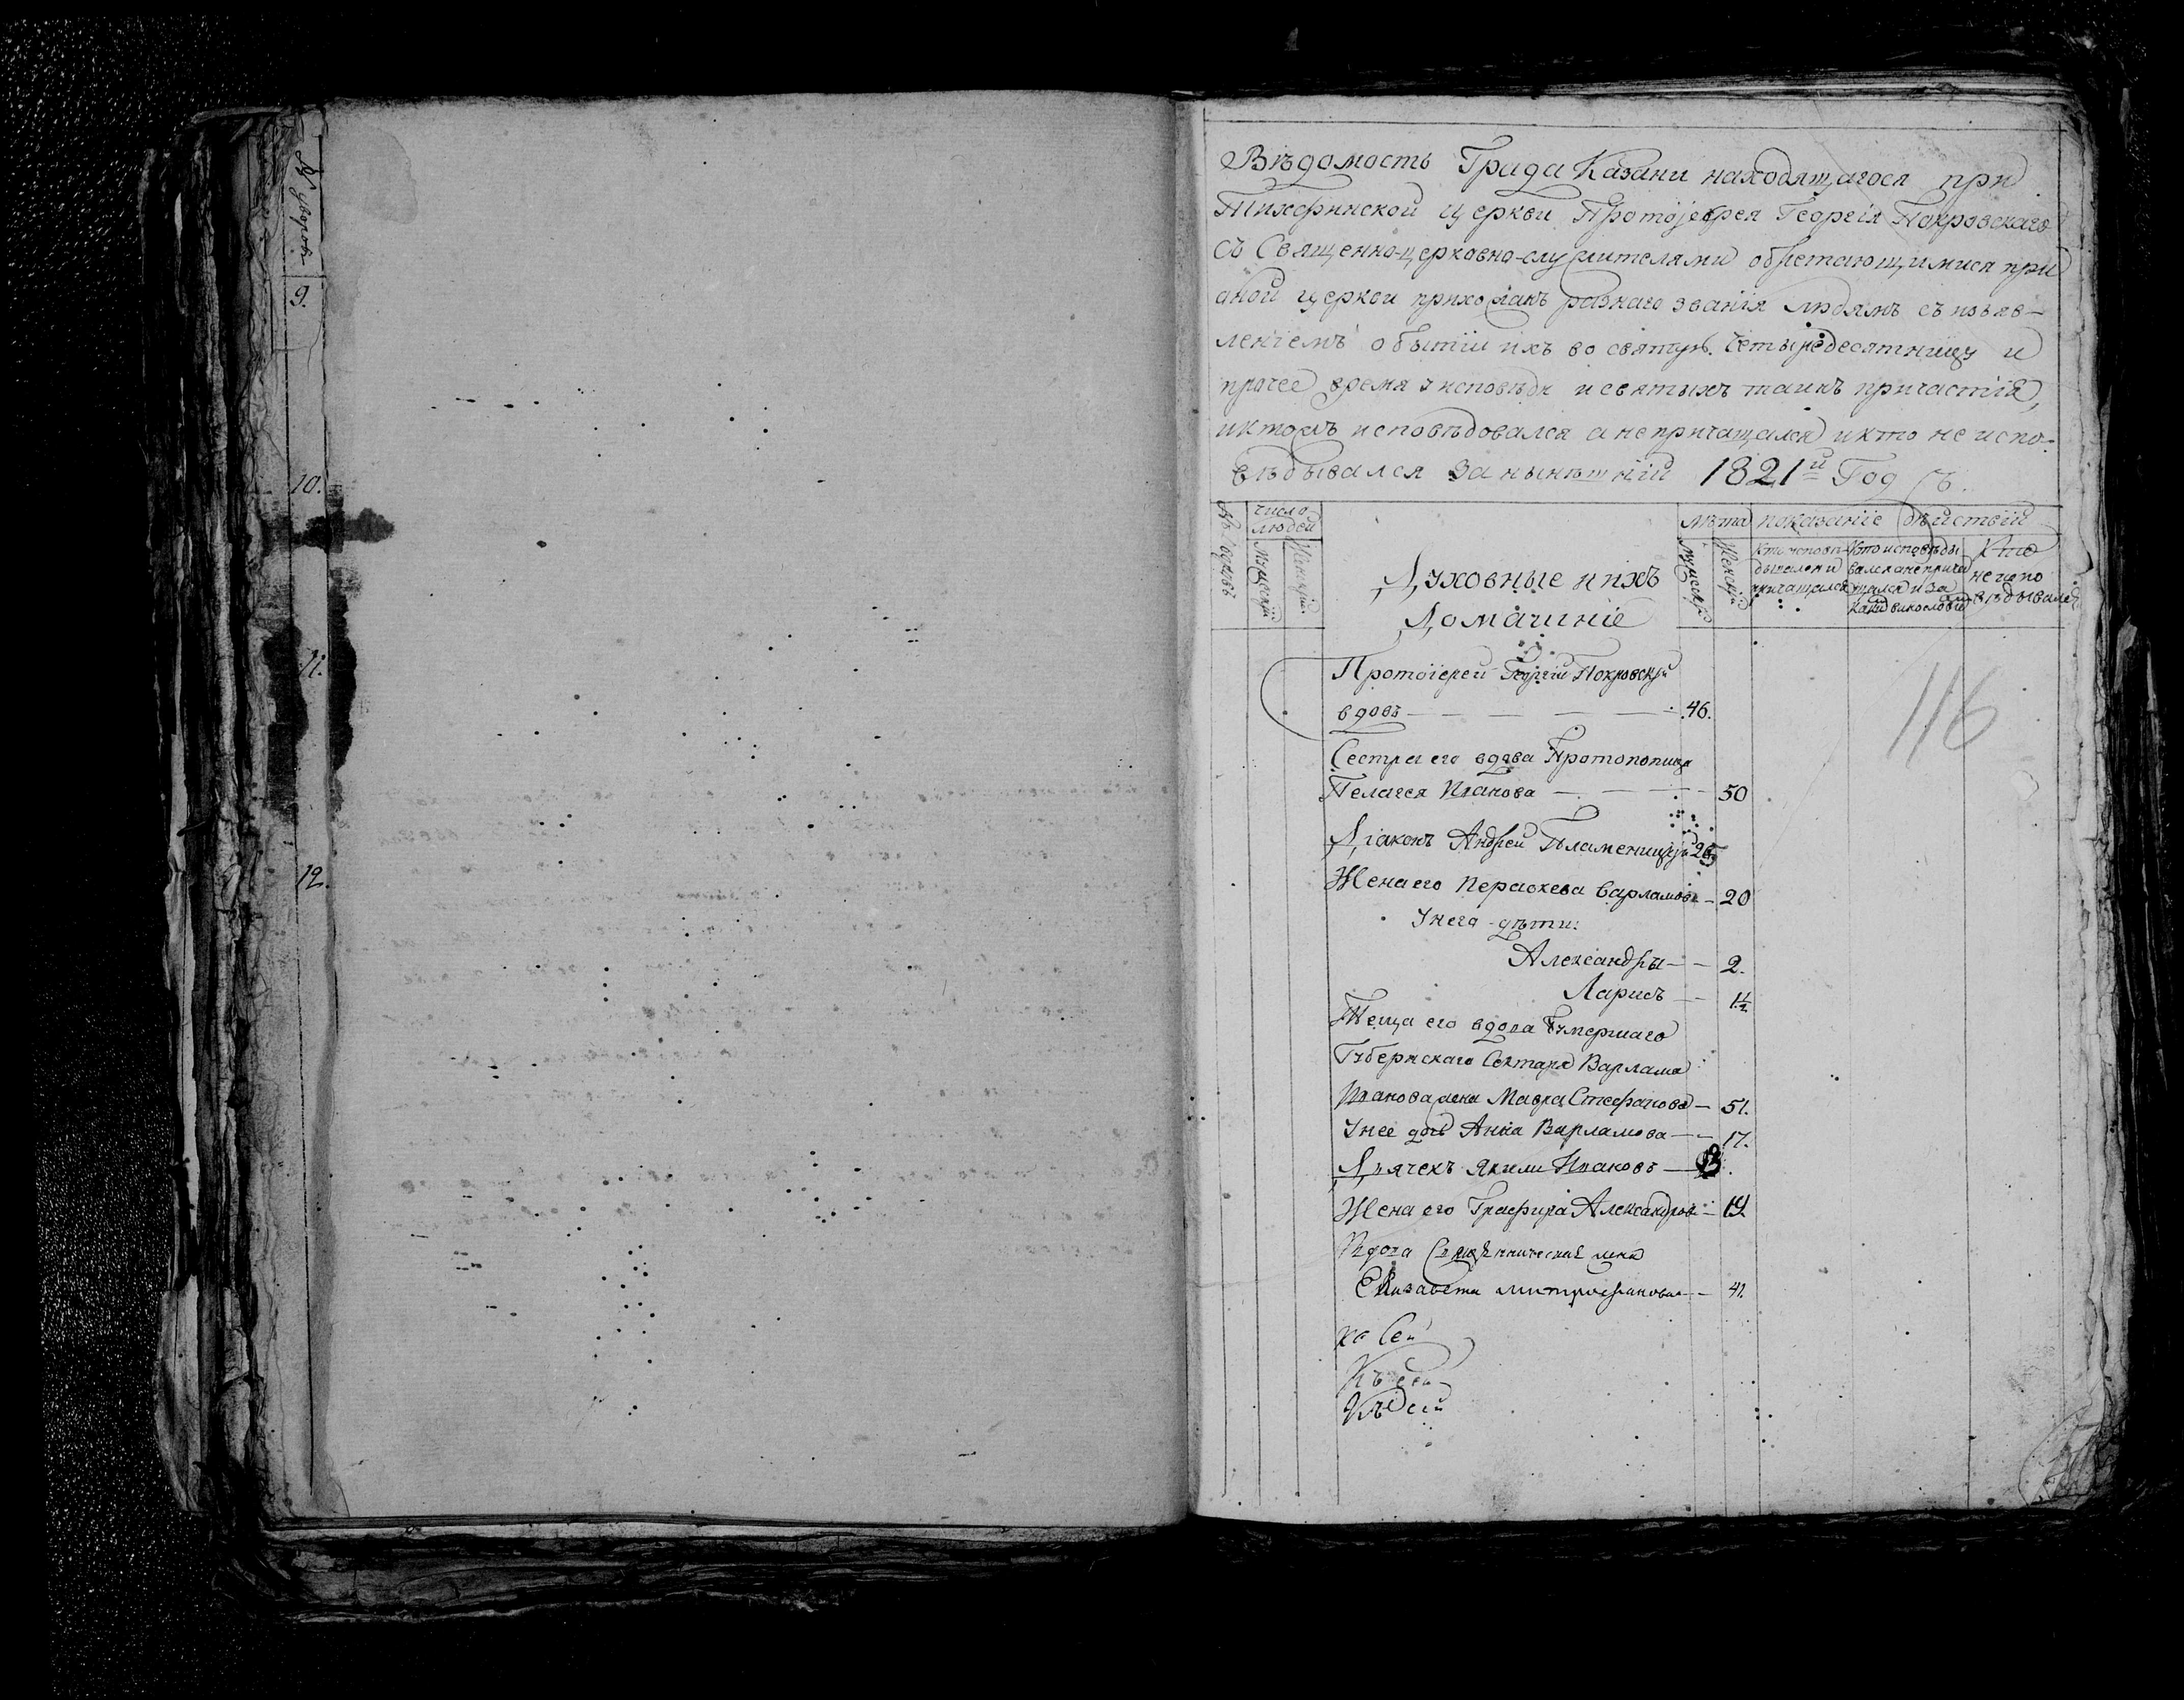 № дворовъ
9.
10.
11.
12.
Вѣдомость Града Казани находящагося при
Тихфинской церкви Протоіерея Георгія Покровскаго
съ Священно-церковно-служителями обретающимися при
оной церкви прихожанъ разнаго званія людямъ съ изъяв-
леніемъ о бытіи ихъ во святую Четыредесятницу и
прочее время у исповѣди и святыхъ таинъ причастія,
и кто жъ исповѣдовался а не причащался и кто не испо-
вѣдывался за нынѣшній 1821й Годъ.
число людей
Лѣта
показаніе дѣйствій
Мужескій
Женскій
Духовные и ихъ
Домашніе
Мужескій
Женскій
Кто исповѣ-
дывался и
причащался
Кто исповѣды
вался а не прича
щался и за
каким винословіем
Кто
не испо
вѣдывался
116
Протоіерей Георгій Покровскій
вдовъ 46.
Сестра его вдова Протопопица
Пелагея Иванова 50
Діаконъ Андрей
Жена его Пераскева Варламова 20
У него дѣти:
Александра 2.
Лариса 1½
Теща его вдова умершаго
Губернскаго Сектаря Варлама
Иванова жена Мавра Стефанова 51.
У нее дочь Анна Варламова 17.
Дьячекъ Якимъ Ивановъ
Жена его Графира Александрова 19.
Вдова Священническая жена
Елизавета Митрофанова 41.
ка Сей
Къ сей
Къ сей